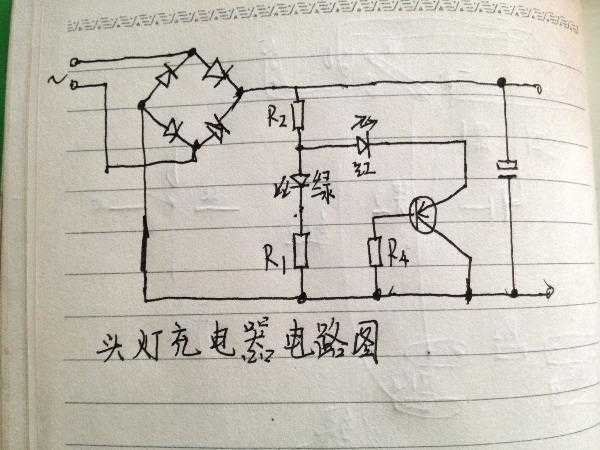 ~
R2
红
绿
R1
R4
头灯充电器电路图